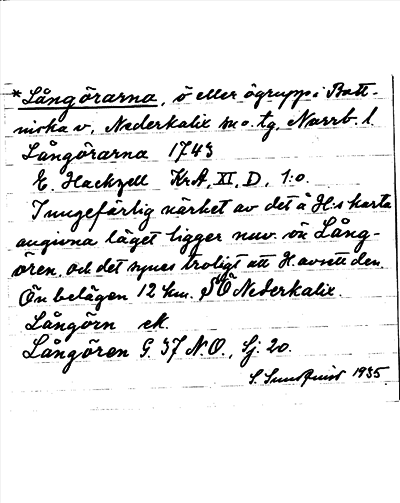 *Långörarna, ö eller ögrupp i Bott-
niska v, Nederkalix sn o. tg, Norrb. l.
Långörarna 1743
E. Hackzell KrA, XI, D, 1:o.
I ungefärlig närhet av det å H:s karta
angivna läget ligger nuv. ön Lång-
ören, och det synes troligt att H avsett den.
Ön belägen 12 km. SÖ Nederkalix.
Långörn eK.
Långören G. 37 N.O., Sj. 20.
S. Sundqvist 1935